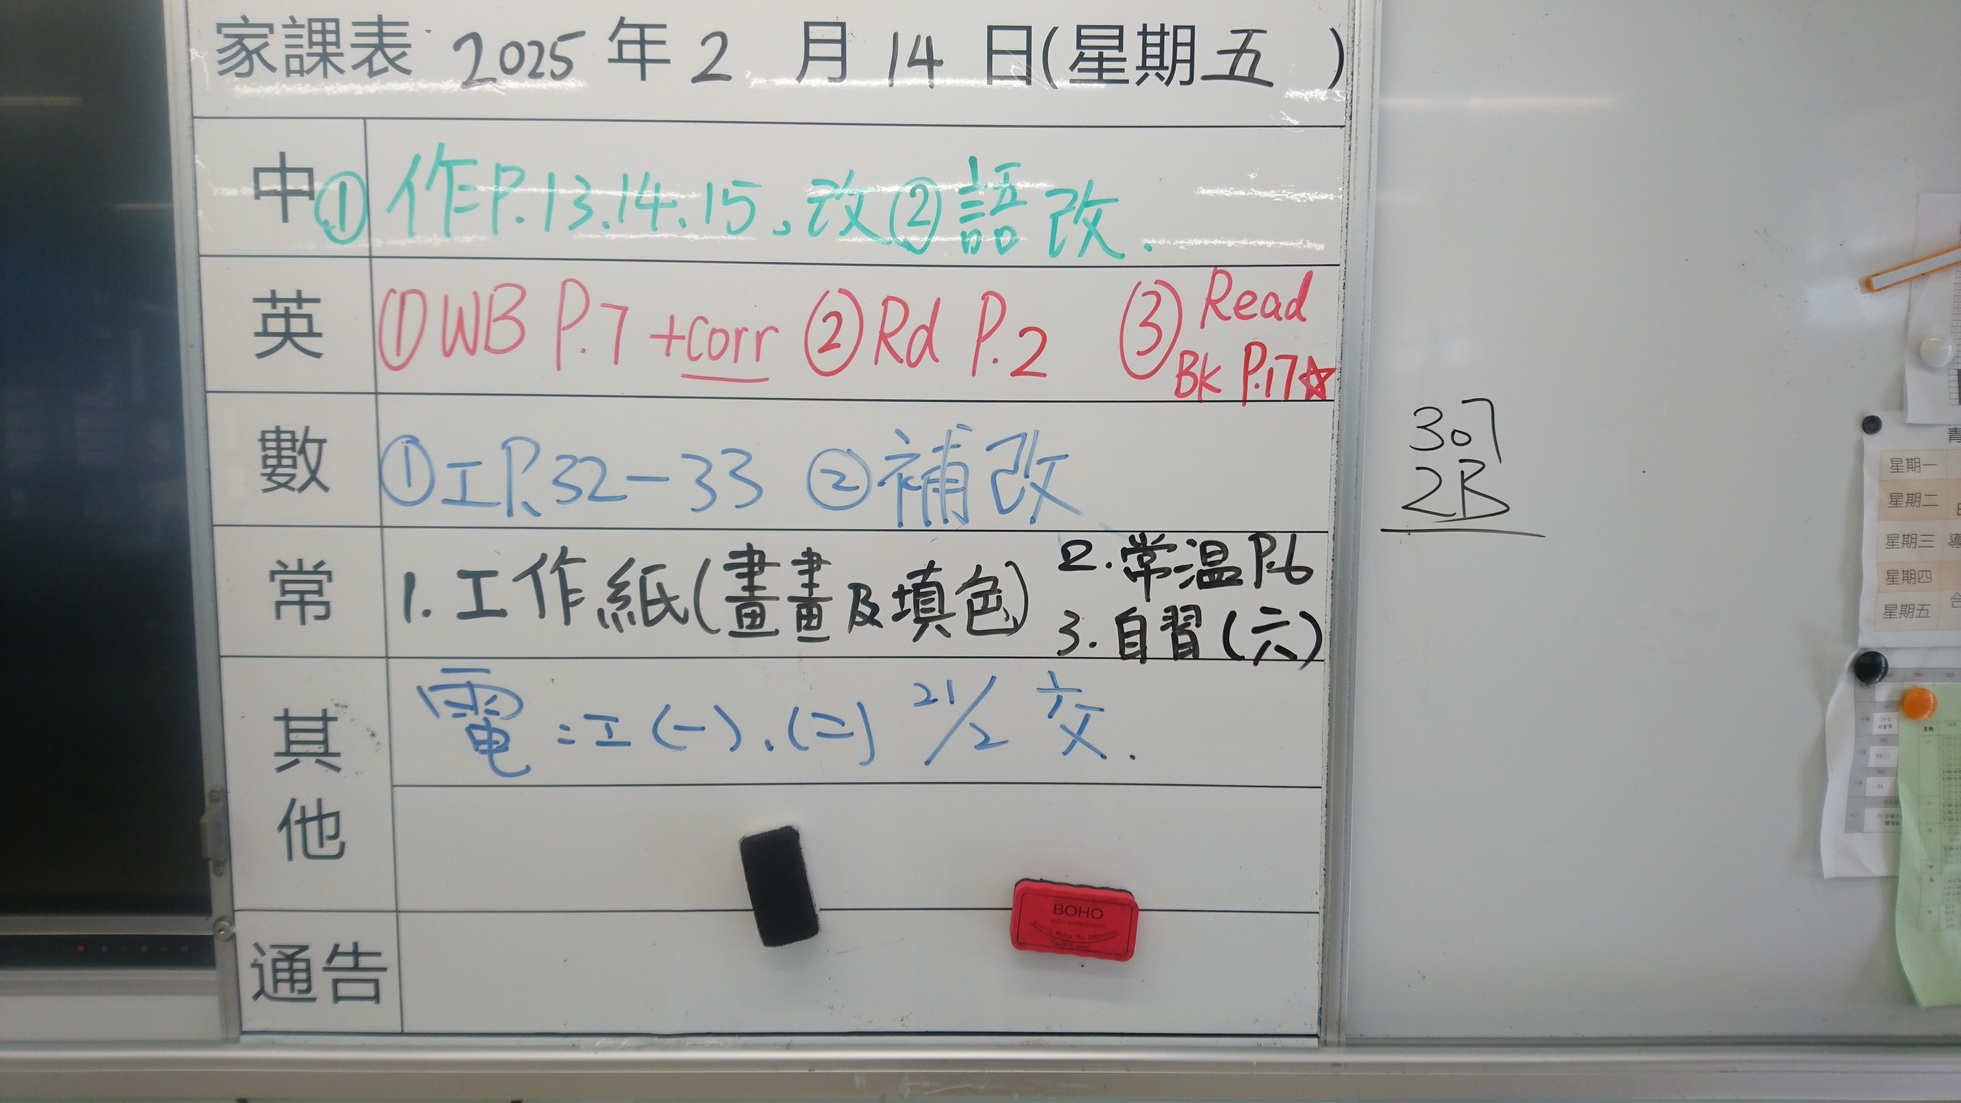 家課表 2025年2月14日(星期五)
中 ①作P.13.14.15、改②語改.
英 ①WB P.7 +corr ②Rd P.2 ③Read Bk P.17☆
數 ①工P.32-33 ②補改
常 1.工作紙(畫畫及填色) 2.常温P.6
3.自習(六)
其他 電:工(一)、(二) 21/2 交.
通告
BOHO
307
2B
星期一
星期二
星期三
星期四
星期五